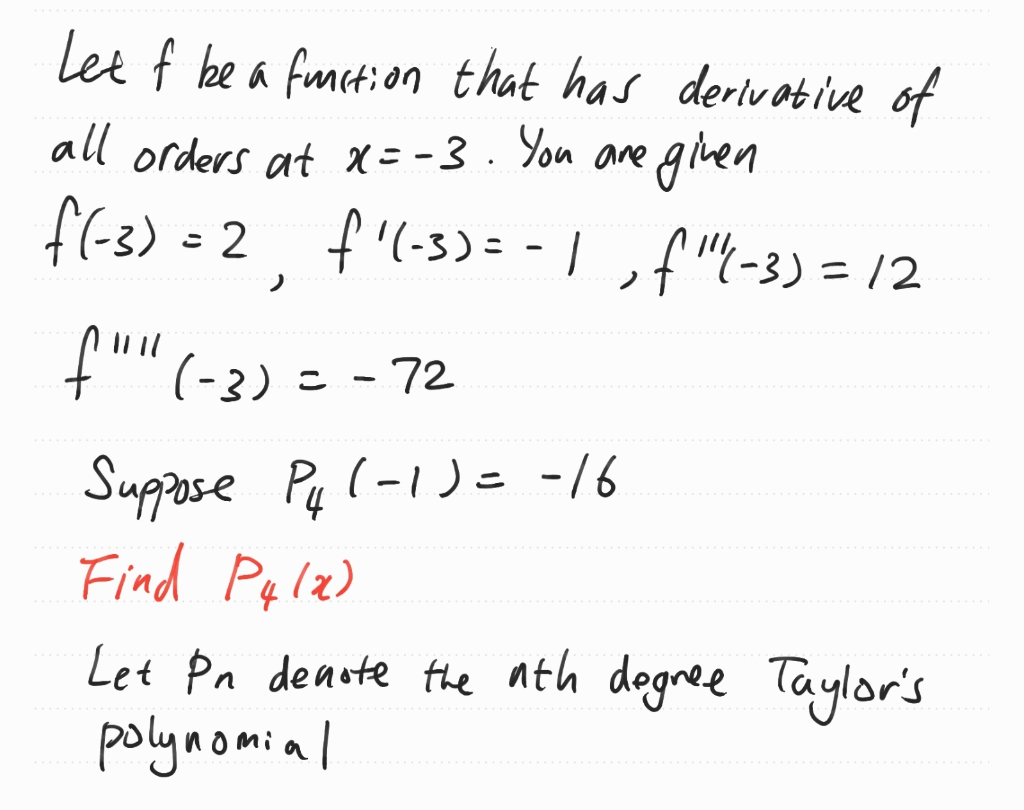 Let f be a function that has derivative of
all orders at x = -3 . You are given
f(-3) = 2 , f'(-3) = - 1 , f'''(-3) = 12
f''''(-3) = - 72
Suppose P₄(-1) = -16
Find P₄(x)
Let Pn denote the nth degree Taylor's
polynomial